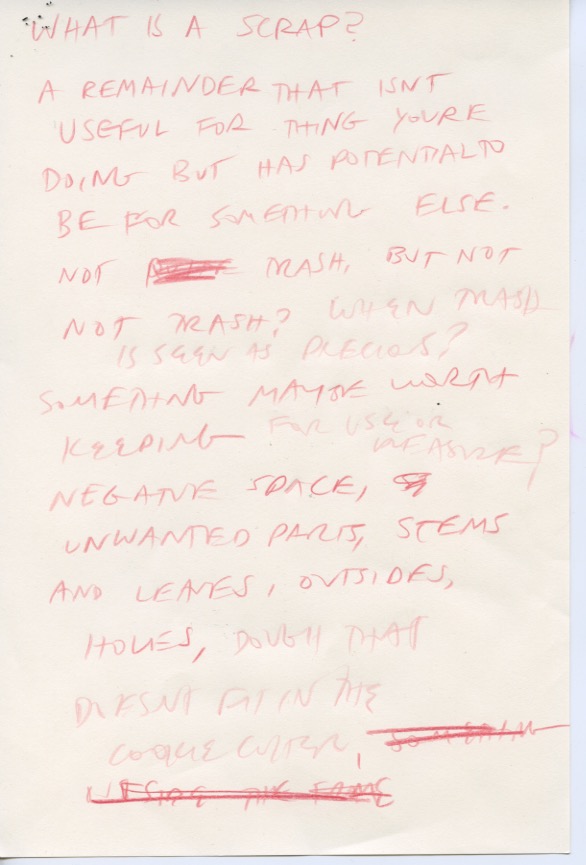 WHAT IS A SCRAP?
A REMAINDER THAT ISNT
USEFUL FOR THING YOURE
DOING BUT HAS POTENTIAL TO
BE FOR SOMETHING ELSE.
NOT TRASH, BUT NOT
NOT TRASH? WHEN TRASH
IS SEEN AS PRECIOUS?
SOMETHING MAYBE WORTH
KEEPING FOR USE OR
MEASURE?
NEGATIVE SPACE,
UNWANTED PARTS, STEMS
AND LEAVES, OUTSIDES,
HOLES, DOUGH THAT
DOESNT FIT IN THE
COOKIE CUTTER,
THE